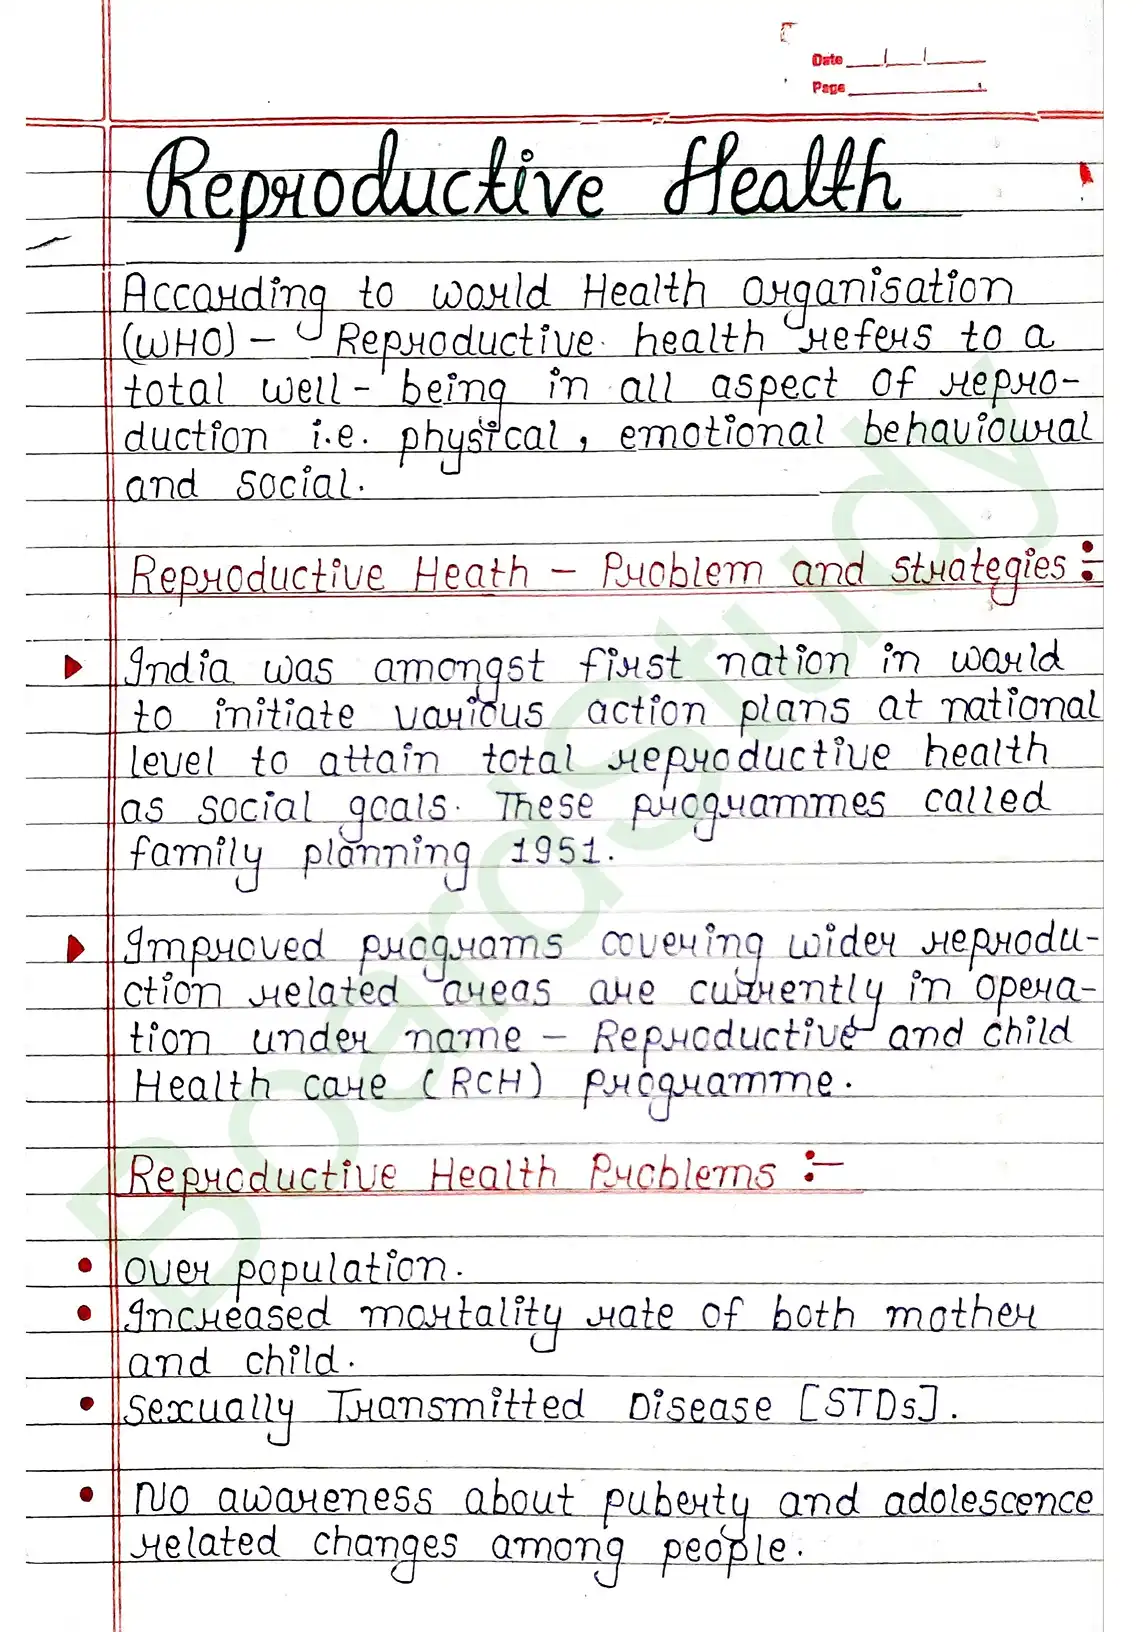 Date
Page
Reproductive Health
According to world Health organisation
(WHO) - Reproductive health refers to a
total well - being in all aspect of repro-
duction i.e. physical, emotional behavioural
and social.
Reproductive Heath - Problem and strategies :-
India was amongst first nation in world
to initiate various action plans at national
level to attain total reproductive health
as social goals. These programmes called
family planning 1951.
Improved programs covering wider reprodu-
ction related areas are currently in opera-
tion under name - Reproductive and child
Health care (RCH) programme.
Reproductive Health Problems :-
over population.
Increased mortality rate of both mother
and child.
Sexually Transmitted Disease [STDs].
No awareness about puberty and adolescence
related changes among people.
BoardStudy